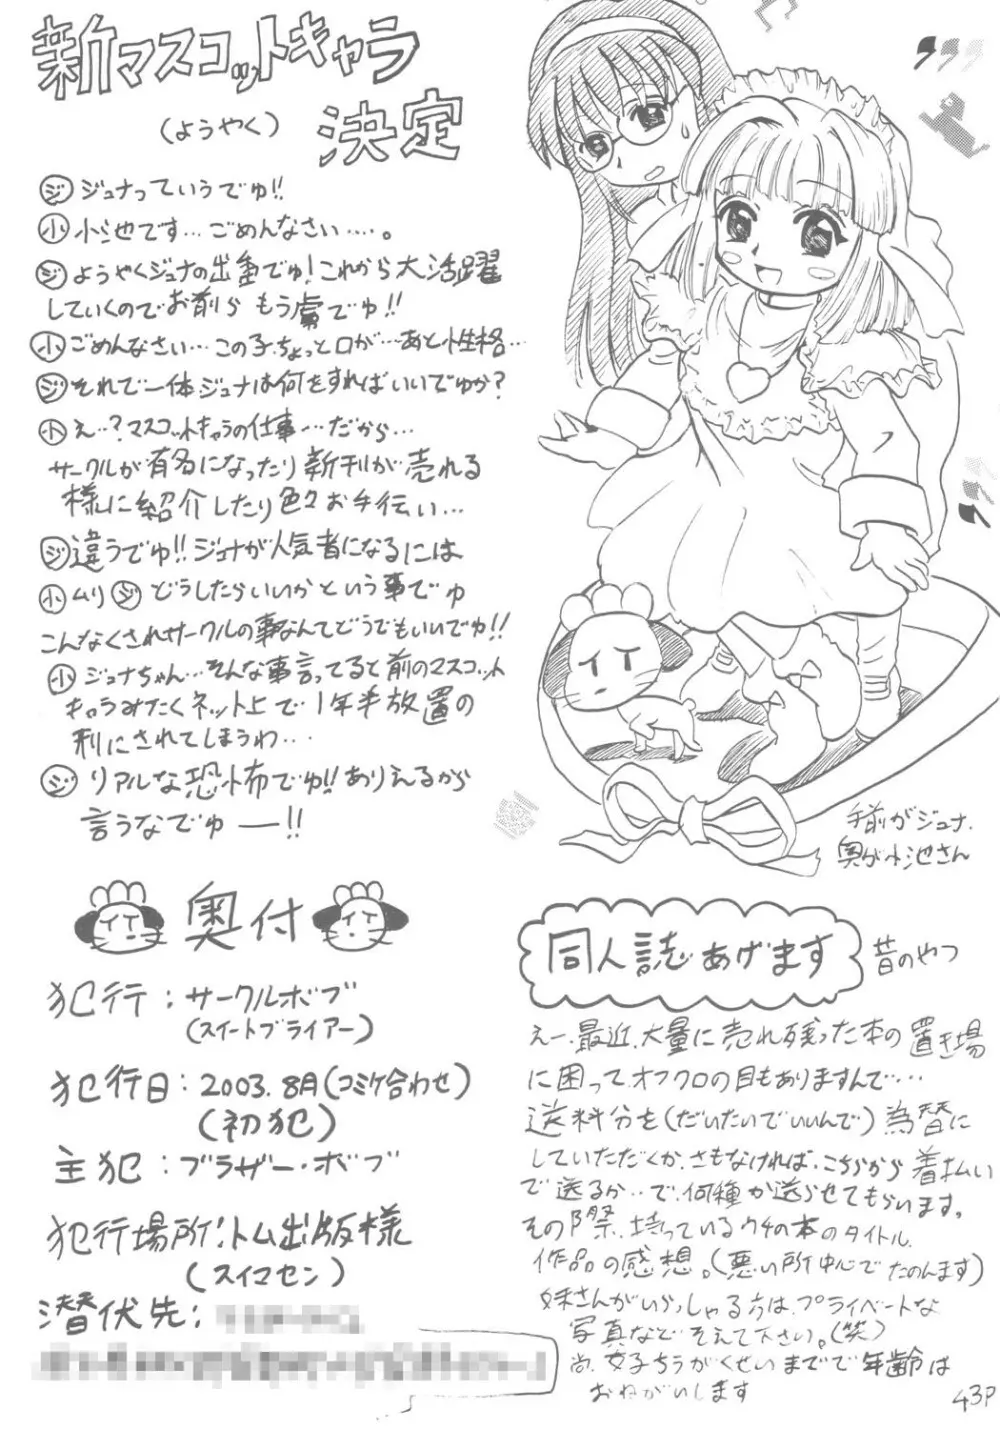 新マスコットキャラ
(ようやく) 決定
ジ ジュナっていうでゅ!!
小 小池です…ごめんなさい….。
ジ ようやくジュナの出番でゅ!これから大活躍
していくのでお前らもう虜でゅ!!
小 ごめんなさい…この子ちょっと口が…あと性格…
ジ それで一体ジュナは何をすればいいでゅか?
小 え…?マスコットキャラの仕事…だから…
サークルが有名になったり新刊が売れる
様に紹介したり色々お手伝い…
ジ 違うでゅ!!ジュナが人気者になるには
小 ムリ ジ どうしたらいいかという事でゅ
こんなくされサークルの事なんてどうでもいいでゅ!!
小 ジュナちゃん…そんな事言ってると前のマスコット
キャラみたくネット上で1年半放置の
刑にされてしまうわ…
ジ リアルな恐怖でゅ!!ありえるから
言うなでゅー!!
手前がジュナ.
奥が小池さん
奥付
犯行:サークルボブ
(スイートブライアー)
犯行日:2003.8月(コミケ合わせ)
(初犯)
主犯:ブラザー・ボブ
犯行場所:トム出版様
(スイマセン)
潜伏先:
同人誌あげます 昔のやつ
えー.最近.大量に売れ残った本の置き場
に困ってオフクロの目もありますんで…
送料分を(だいたいでいいんで)為替に
していただくか、さもなければ、こちらから着払い
で送るか…で、何種か送らせてもらいます。
その際、持っているウチの本のタイトル、
作品の感想。(悪い所中心でたのんます)
妹さんがいらっしゃる方は、プライベートな
写真などそえて下さい。(笑)
尚、女子ちうがくせいまでで年齢は
おねがいします
43P